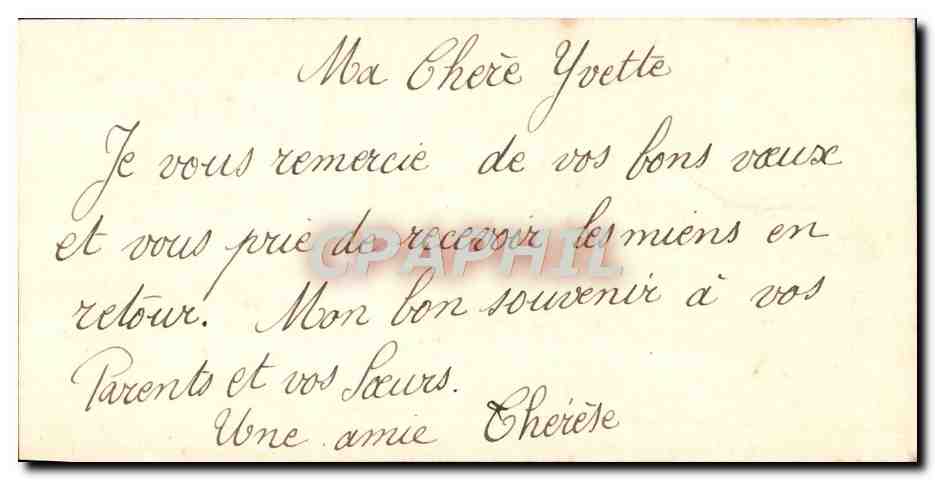 Ma Chère Yvette
Je vous remercie de vos bons vœux
et vous prie de recevoir les miens en
retour. Mon bon souvenir à vos
Parents et vos Sœurs.
Une amie Thérèse
CPAPHIL